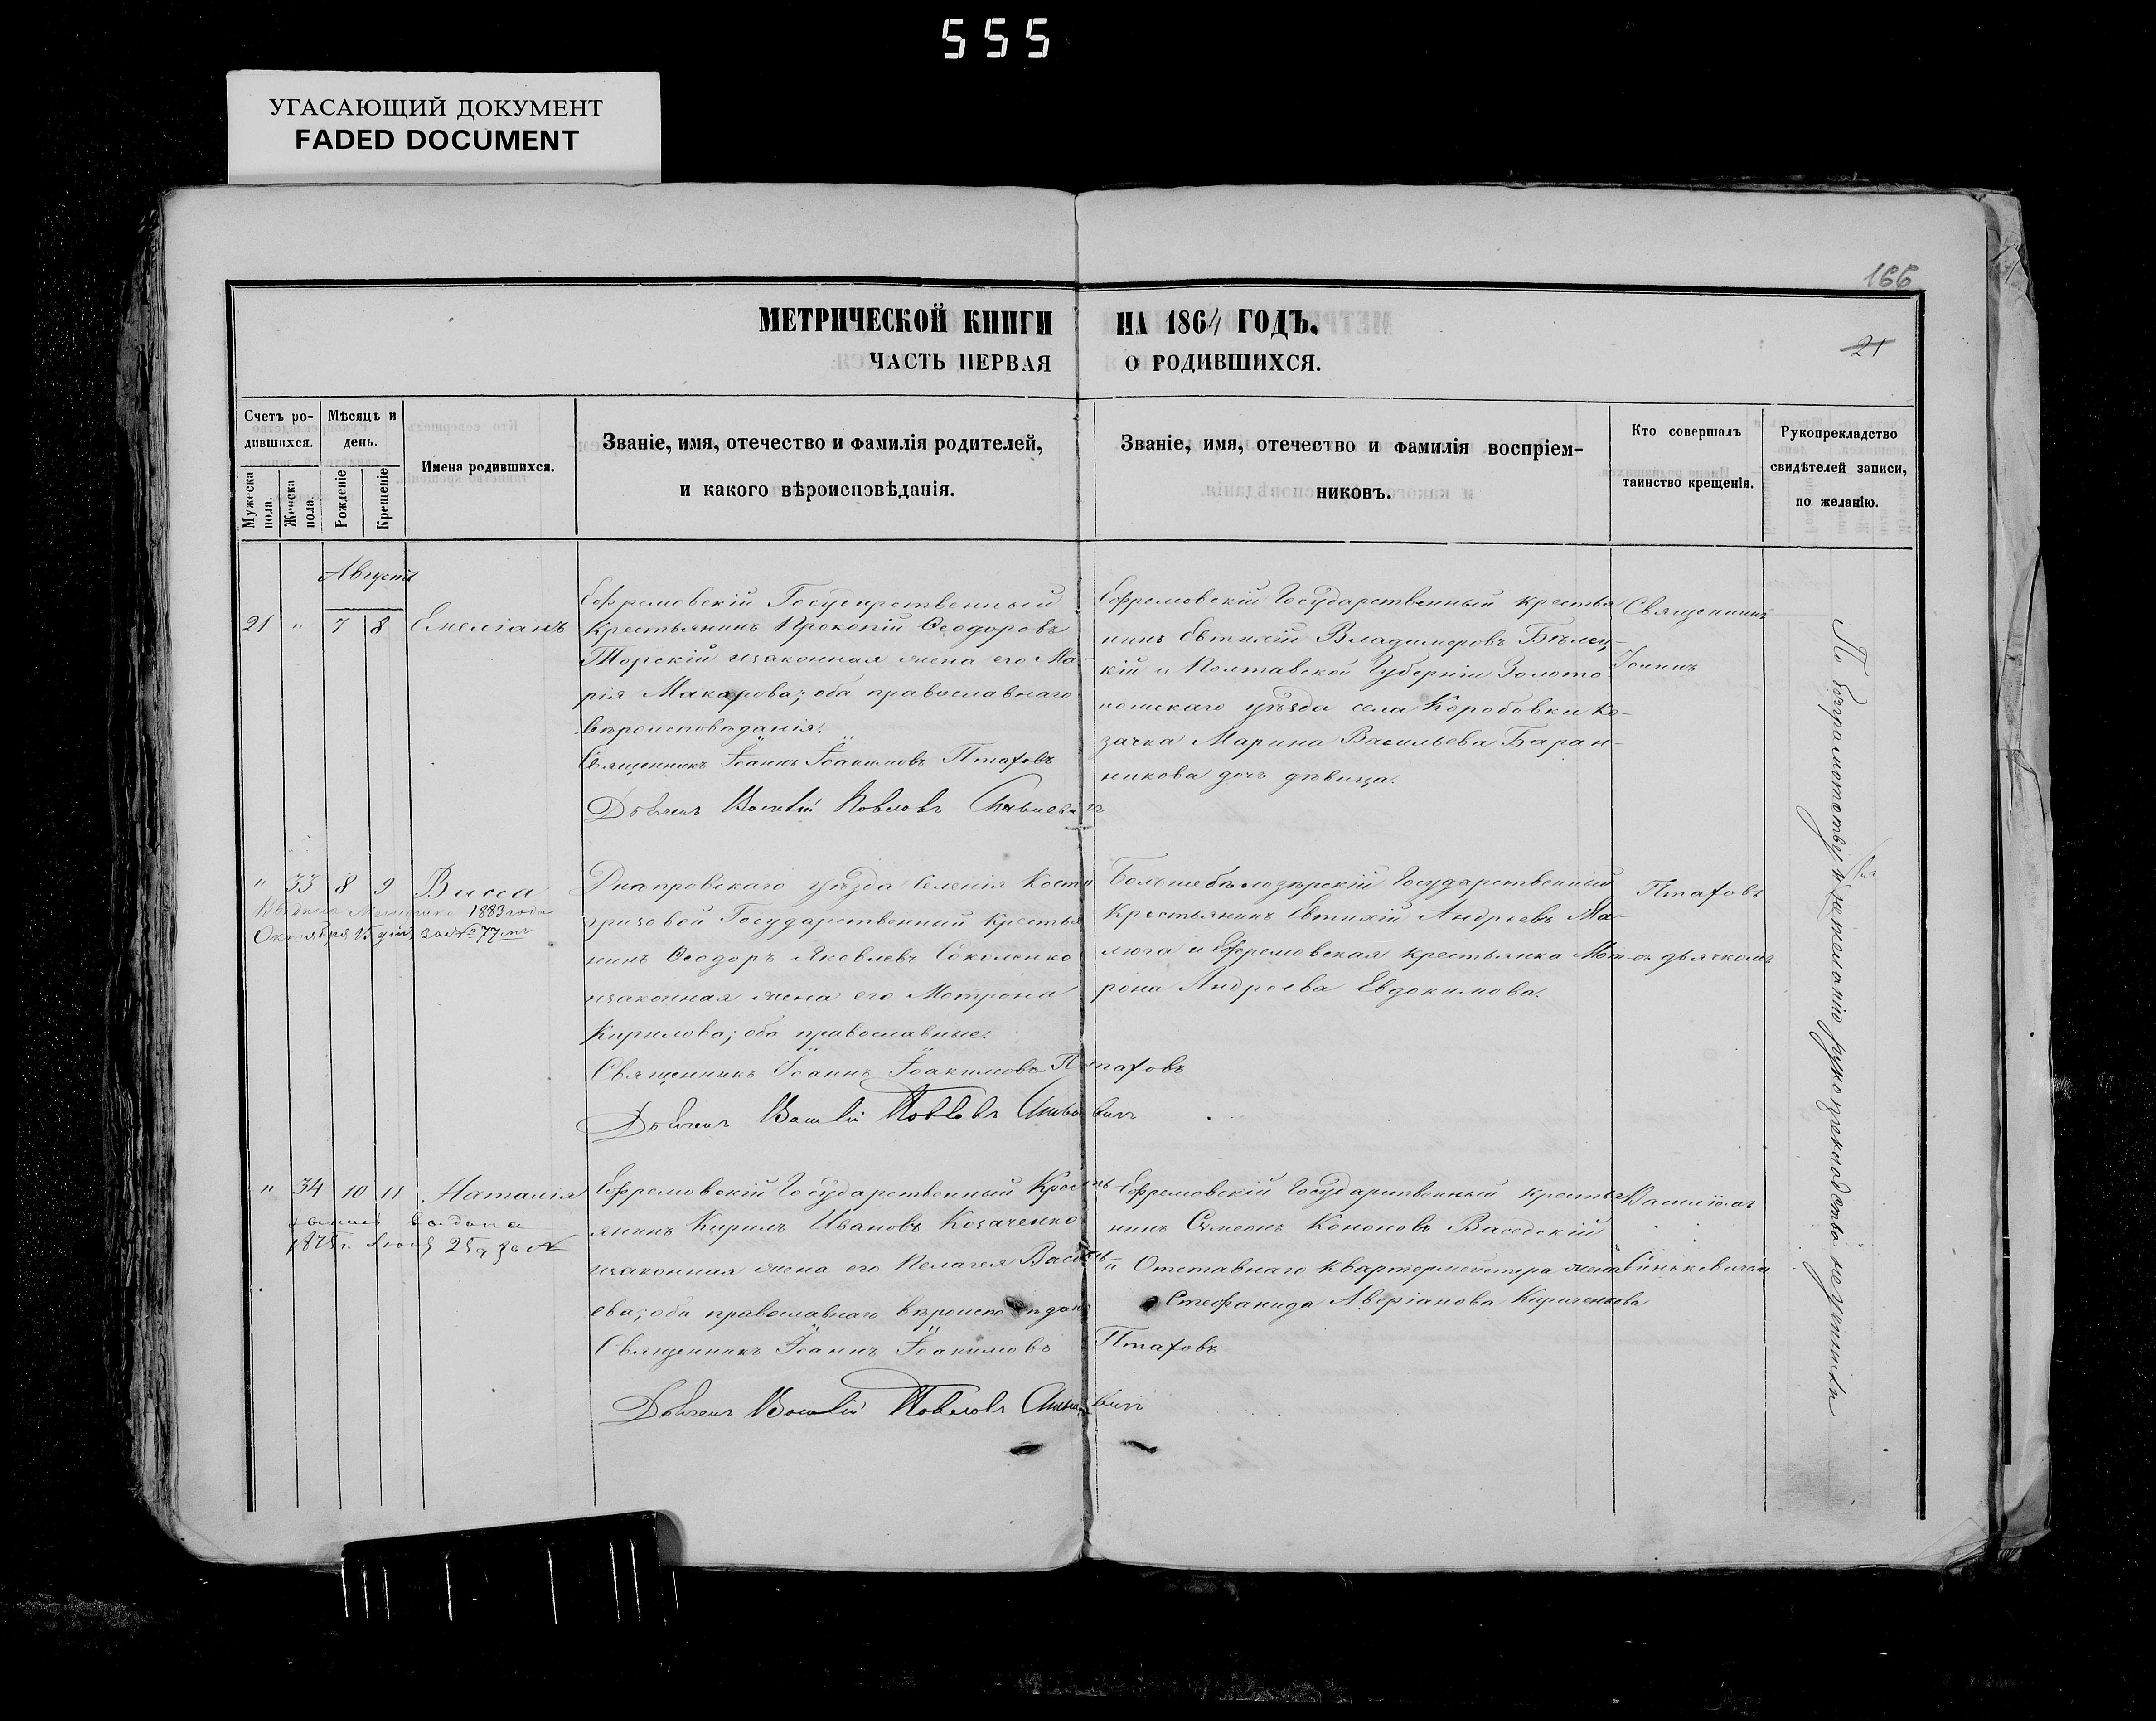 555
УГАСАЮЩИЙ ДОКУМЕНТ
FADED DOCUMENT
166
МЕТРИЧЕСКОЙ КНИГИ НА 1864 ГОДЪ.
21
ЧАСТЬ ПЕРВАЯ О РОДИВШИХСЯ.
Счетъ ро-
дившихся.
Мужеска пола.
Женска пола.
Мѣсяцъ и
день.
Рожденіе
Крещеніе
Имена родившихся.
Званіе, имя, отечество и фамилія родителей,
и какого вѣроисповѣданія.
Званіе, имя, отечество и фамилія воспріем-
никовъ.
Кто совершалъ
таинство крещенія.
Рукоприкладство
свидѣтелей записи,
по желанію.
Августъ
21 " 7 8 Емеліанъ
Ефремовскій Государственный
Крестьянинъ Прокопій Ѳеодоровъ
Торскій изаконная жена его Ма-
рія Макарова; оба православнаго
вѣроисповѣданія.
Священникъ Іоаннъ Іоакимовъ Птаховъ
Дьячекъ Василій Павловъ
Ефремовскій Государственный крестья
нинъ Евтихій Владимеровъ Бѣлец-
кій и Полтавской Губерніи Золото-
ношскаго уѣзда села Коробовки Ко-
зачка Марина Васильева Баран-
никова дочь дѣвица.
Священникъ
Іоаннъ
" 33 8 9 Васса
Выдана Метрика 1883 года
Октября 15 дня за № 77
Днѣпровскаго уѣзда Селенія Кост
Государственный крестья
нинъ Ѳеодоръ Яковлевъ Соколенко
изаконная жена его Мотрона
Кирилова; оба православные.
Священникъ Іоаннъ Іоакимовъ Птаховъ
Дьячекъ Василій Павловъ
Большебѣлозѣрскій Государственный
Крестьянинъ Евтихій Андреевъ Ма-
люга и Ефремовская крестьянка Мот-
рона Андреева Евдокимова.
Птаховъ
съ дьячкомъ
" 34 10 11 Наталія
выдана
1875 г.
Ефремовскій Государственный Кресть
янинъ Кирилъ Ивановъ Козаченко
изаконная жена его Пелагея Василь
ева; оба православнаго вѣроисповѣдан
Священникъ Іоаннъ Іоакимовъ Птаховъ
Дьячекъ Василій Павловъ
Ефремовскій Государственный крестья
нинъ Сѵмеонъ Кононовъ
и Отставнаго Квартермейстера жена
Стефанида Аверіанова Кириченкова
Василіемъ
Синькевичемъ
По безграмотству и нежеланію рукоприкладства не учинили